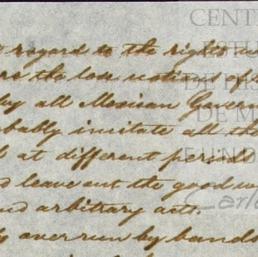 regard to the rights
the low notions of
by all Mexican Govern
obably imitate all the
at different period
d leave out the good
nd arbitrary acts.
over run by bands
CENT
ESTU
DE HIS
DE M
FUND